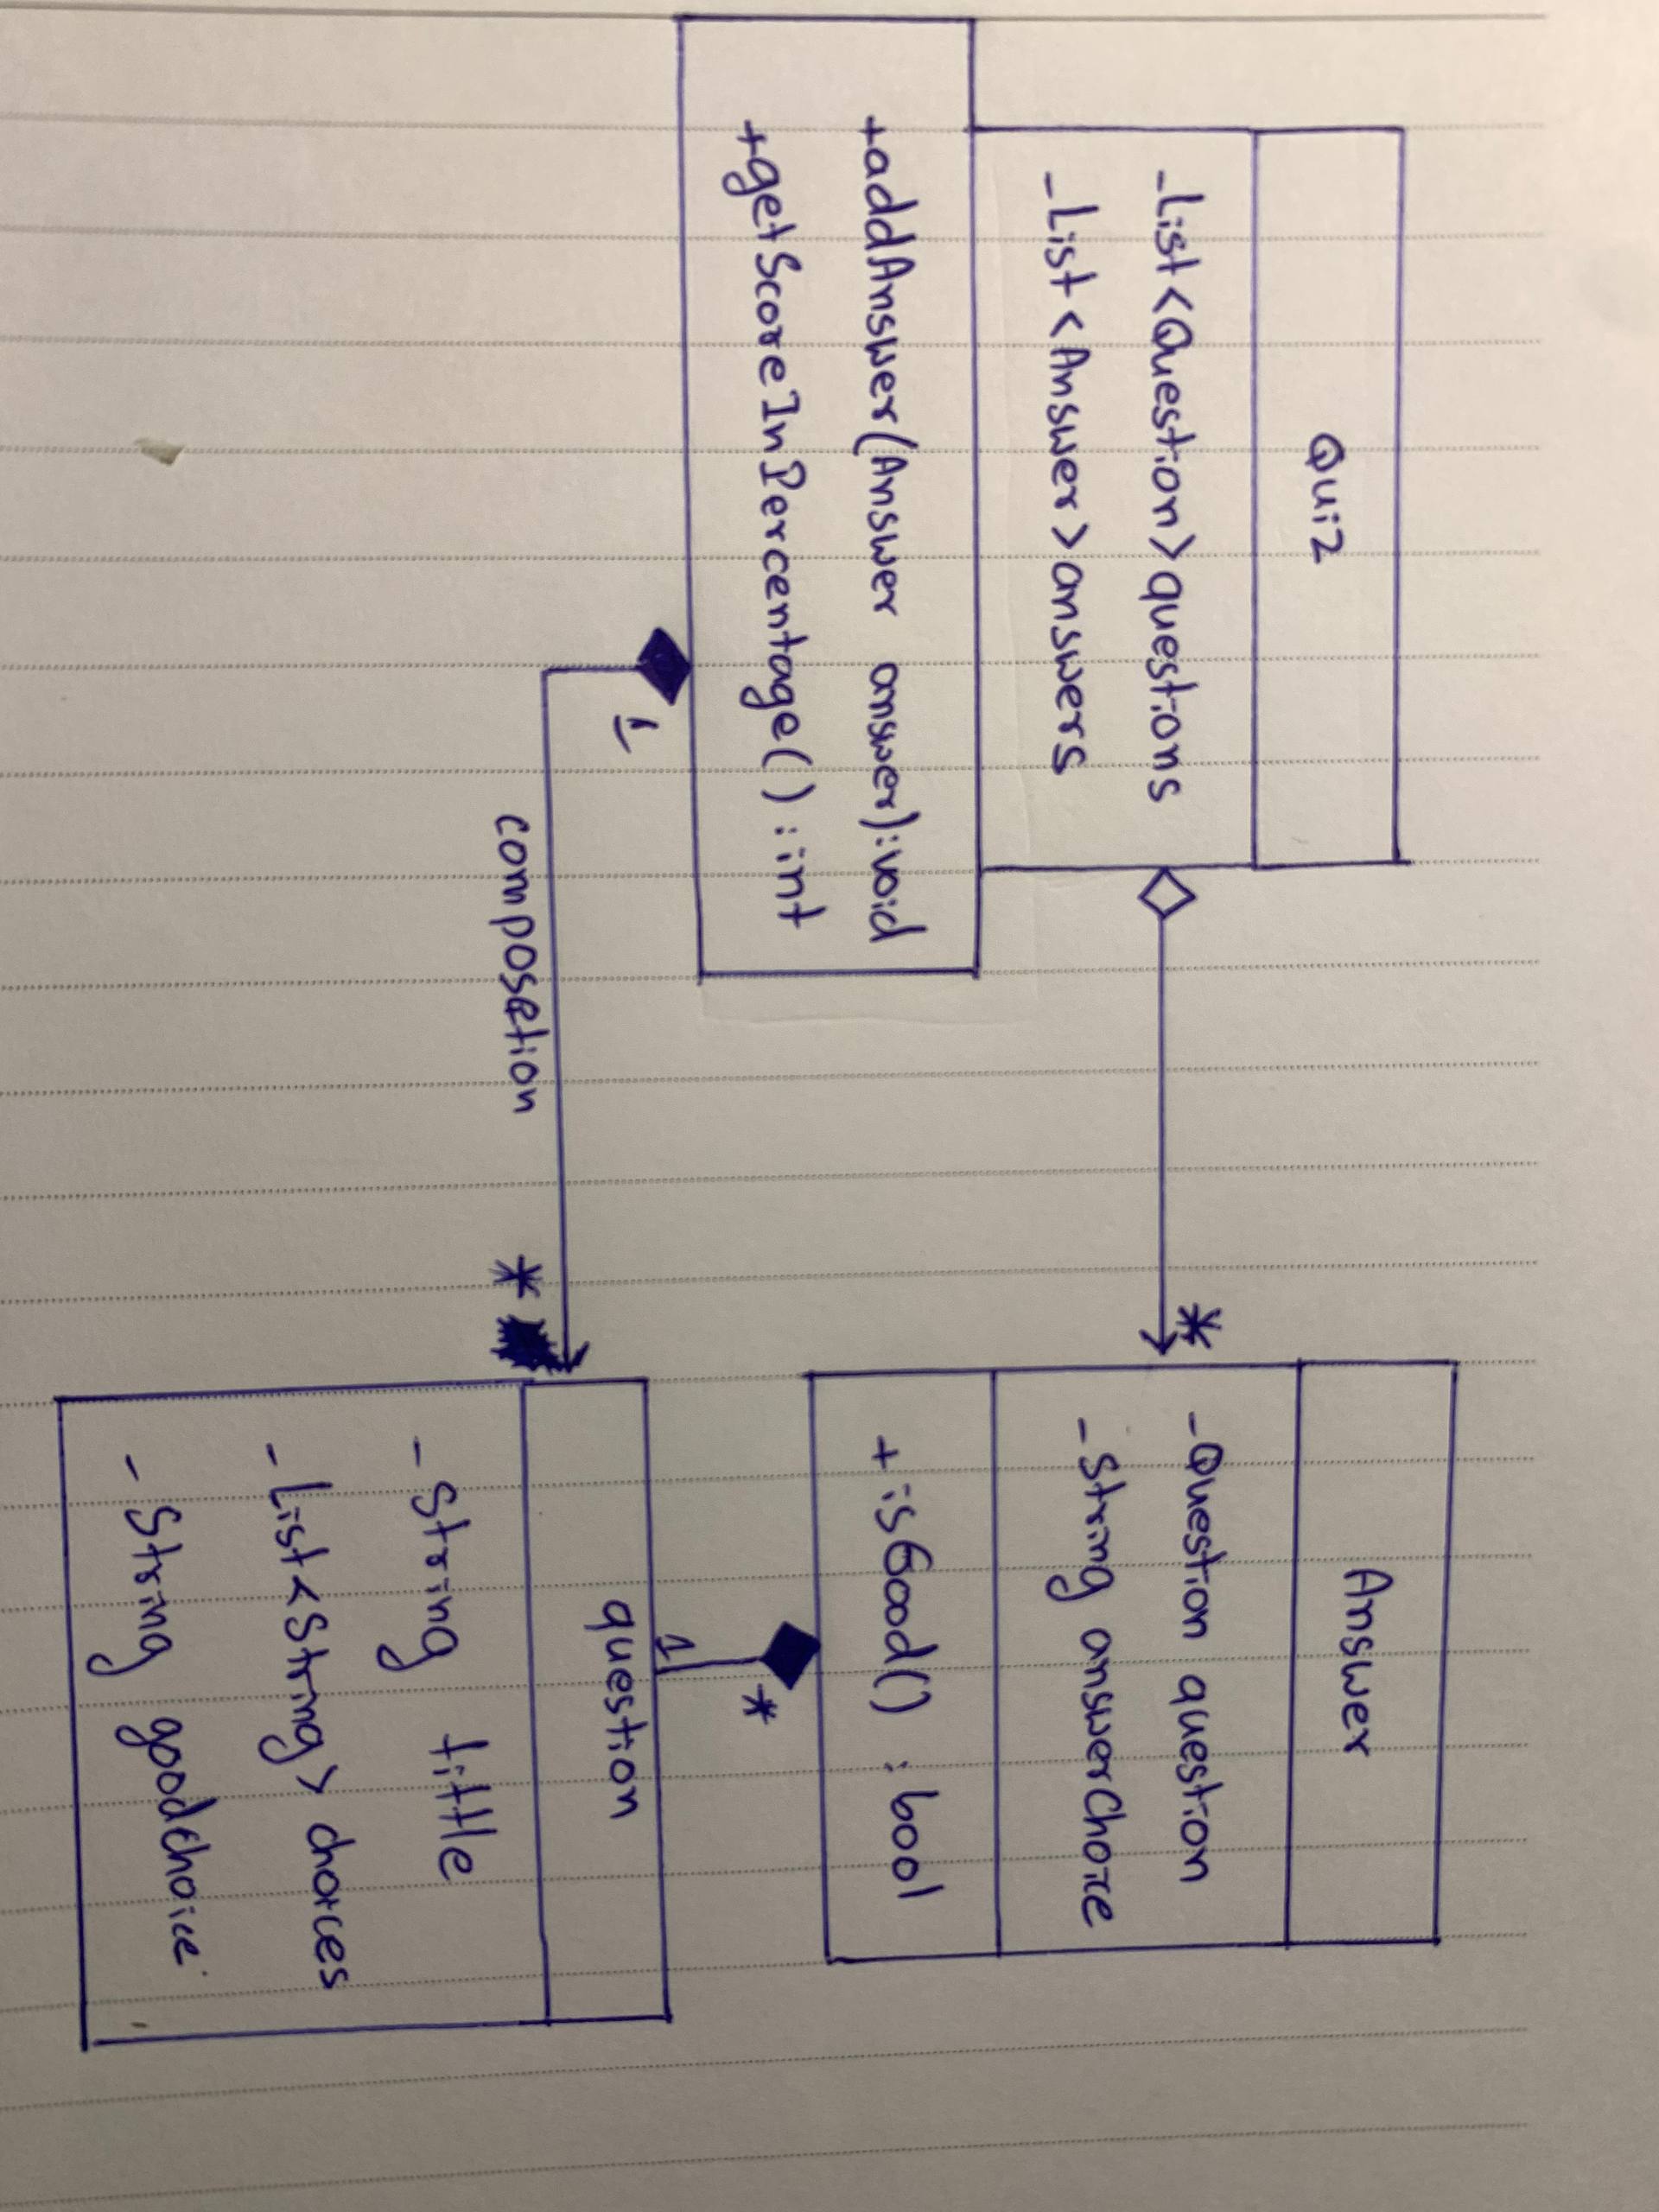 Quiz
-List<Question>questions
-List<Answer>answers
+addAnswer(Answer answer):void
+getScoreInPercentage():int
1
composetion
*
*
Answer
-Question question
-String answerChoice
+isGood() : bool
*
1
question
-String tittle
-List<String> choices
-String goodChoice